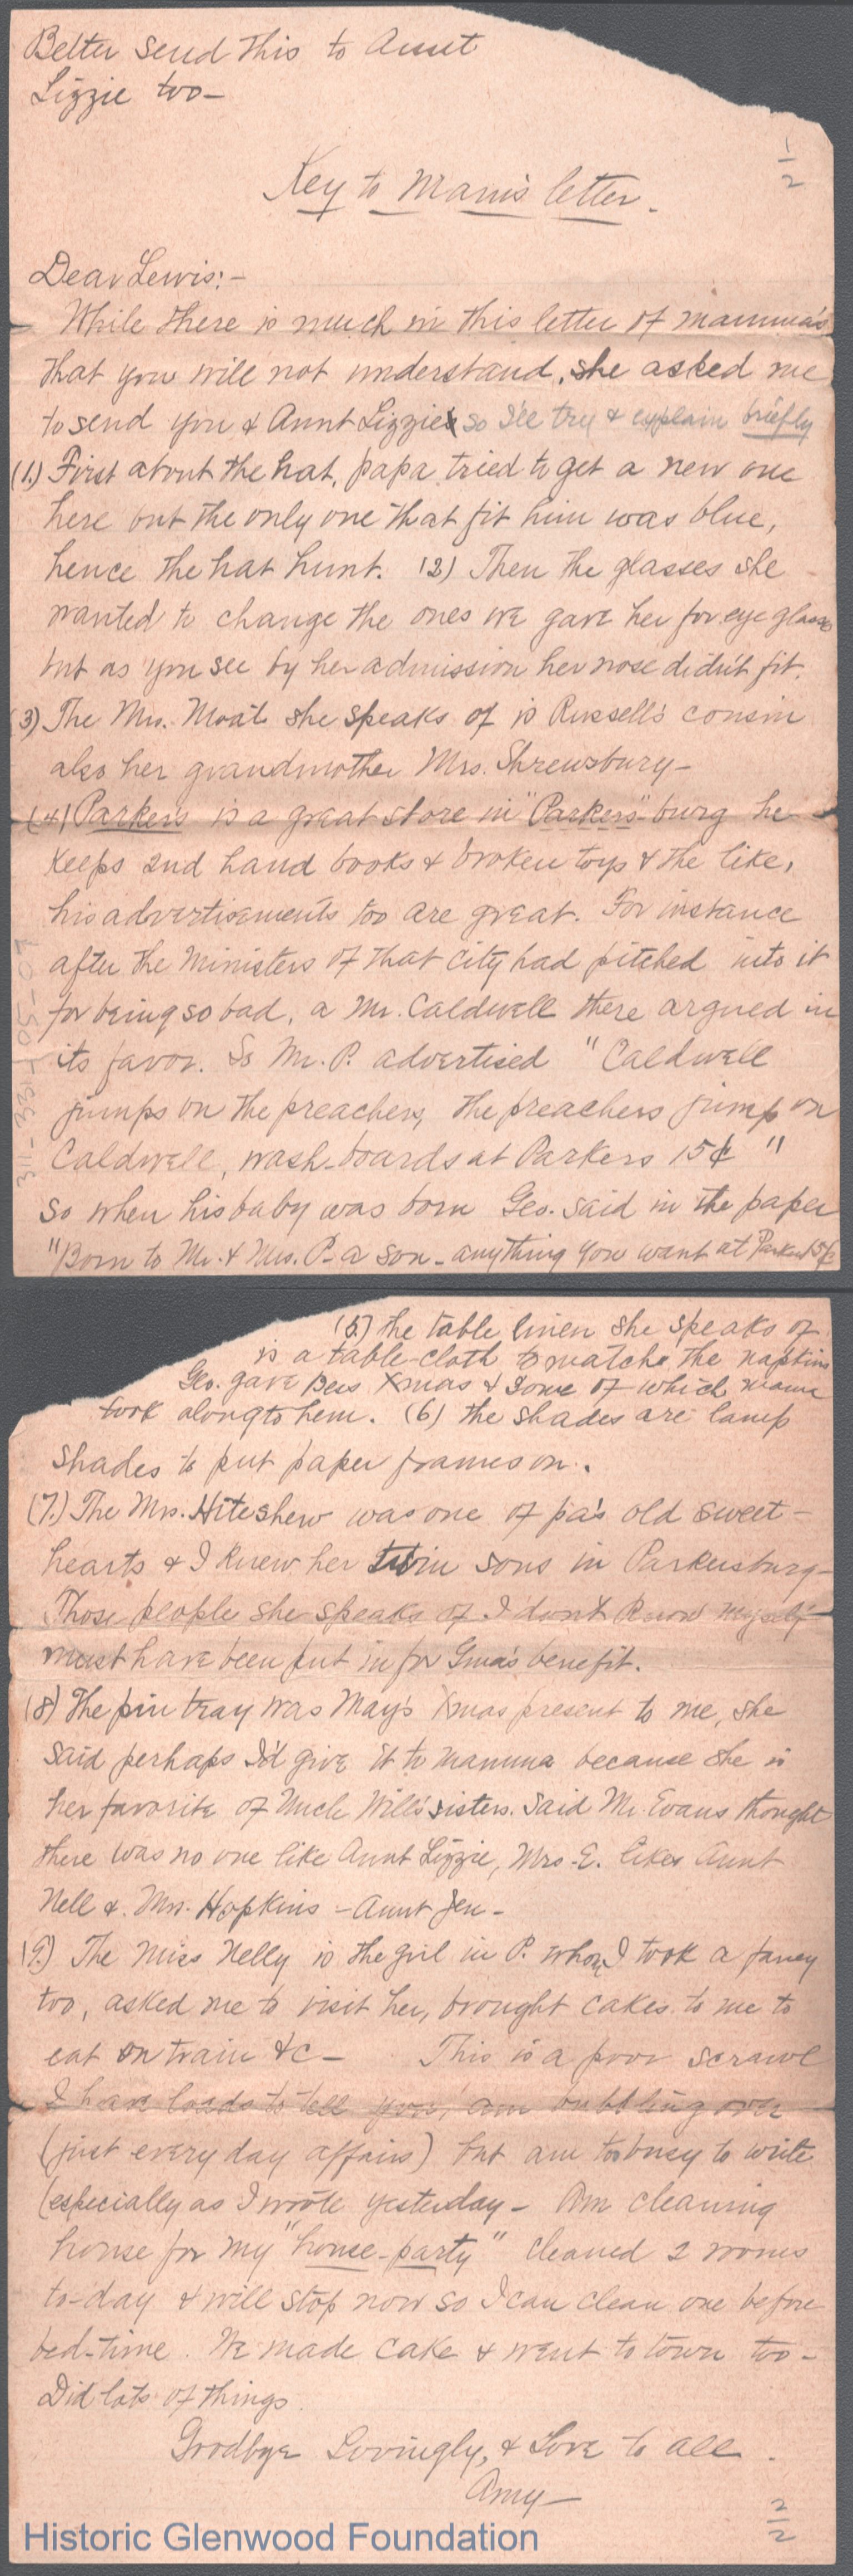 Better send this to Aunt
Lizzie too-
1/2
Key to Mam's letter.
Dear Lewis:-
While there is much in this letter of mamma's
that you will not understand, she asked me
to send you & Aunt Lizzie so I'll try & explain briefly
(1.) First about the hat, papa tried to get a new one
here but the only one that fit him was blue,
hence the hat hunt. (2) Then the glasses she
wanted to change the ones we gave her for eye glasses
but as you see by her admission her nose didn't fit.
(3) The Mrs. Moat she speaks of is Russell's cousin
also her grandmother Mrs. Shrewsbury-
(4) Parkers is a great store in "Parkers"-burg he
keeps 2nd hand books & broken toys & the like,
his advertisements too are great. For instance
after the ministers of that city had pitched into it
for being so bad, a Mr. Caldwell there argued in
its favor. So Mr. P. advertised "Caldwell
jumps on the preachers, the preachers jump on
Caldwell, wash-boards at Parkers 15¢"
so when his baby was born Geo. said in the paper
"Born to Mr. & Mrs. P- a son- anything you want at Parkers 15¢
(5.) the table linen she speaks of
is a table-cloth to matche the napkins
Geo. gave Bess Xmas & some of which mama
took along to hem. (6) the shades are lamp
shades to put paper frames on.
(7.) The Mrs. Hiteshew was one of pa's old sweet-
hearts & I knew her twin sons in Parkersburg-
Those people she speaks of I don't know myself
must have been put in for Gma's benefit.
(8) The pin tray was May's Xmas present to me, she
said perhaps I'd give it to mamma because she is
her favorite of Uncle Will's sisters. Said Mr. Evans thought
there was no one like Aunt Lizzie, Mrs-E. likes Aunt
Nell & Mrs. Hopkins -Aunt Jen-
(9.) The Miss Nelly is the girl in P. whom I took a fancy
too, asked me to visit her, brought cakes to me to
eat on train &c- This is a poor scrawl
I have loads to tell you, am bubbling over
(just every day affairs) but am too busy to write
(especially as I wrote yesterday- Am cleaning
house for my "house-party" cleaned 2 rooms
to-day & will stop now so I can clean one before
bed-time. We made cake & went to town too-
Did lots of things.
Goodbye Lovingly, & Love to all.
Amy-
2/2
Historic Glenwood Foundation